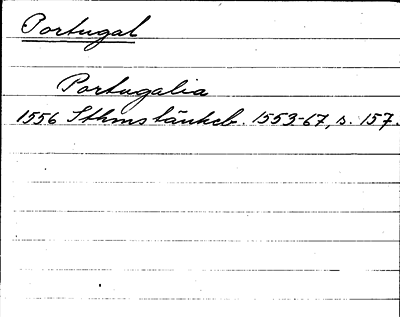 Portugal
Portugalia
1556 Sthms tänkeb. 1553-67, s. 157.